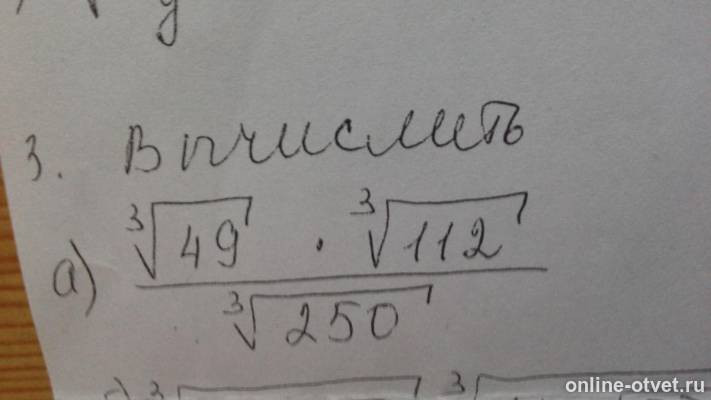 у
3. Вычислить
а) (∛49 · ∛112) / ∛250
online-otvet.ru